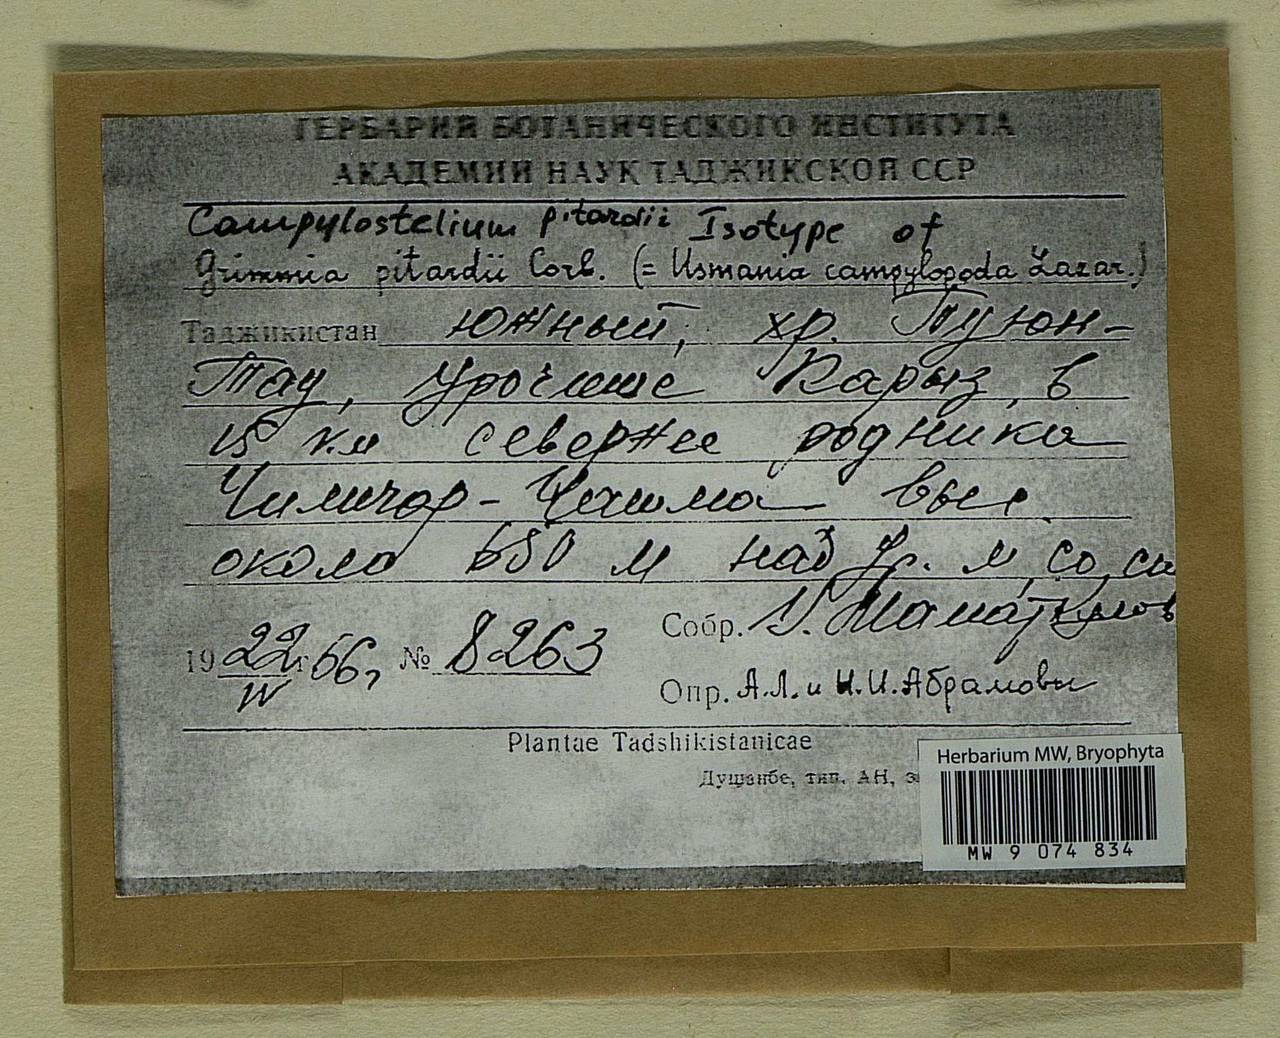 ГЕРБАРИЙ БОТАНИЧЕСКОГО ИНСТИТУТА
АКАДЕМИИ НАУК ТАДЖИКСКОЙ ССР
Campylostelium pitardii Isotype of
Grimmia pitardii Corb. (= Usmania campylopoda Lazar.)
Таджикистан южный, хр. Туюн-
Тау, урочище Карыз, в
15 км севернее родника
Чиличор-Чашма выс.
около 650 м над ур. м, со, си
1922/IV г 66, № 8263
Собр. У. Маматкулов
Опр. А.Л. и И.И. Абрамовы
Plantae Tadshikistanicae
Душанбе, тип. АН,
Herbarium MW, Bryophyta
MW 9 074 834